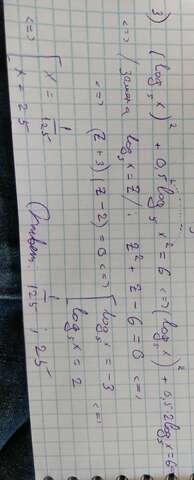 3) (log₅ x)² + 0,5 log₅ x² = 6 <=> (log₅ x)² + 0,5·2log₅ x = 6
<=> / Замена log₅ x = z /: z² + z - 6 = 0 <=>
<=> (z + 3)(z - 2) = 0 <=> [ log₅ x = -3
log₅ x = 2 <=>
<=> [ x = 1/125
x = 25 Ответ: 1/125 ; 25